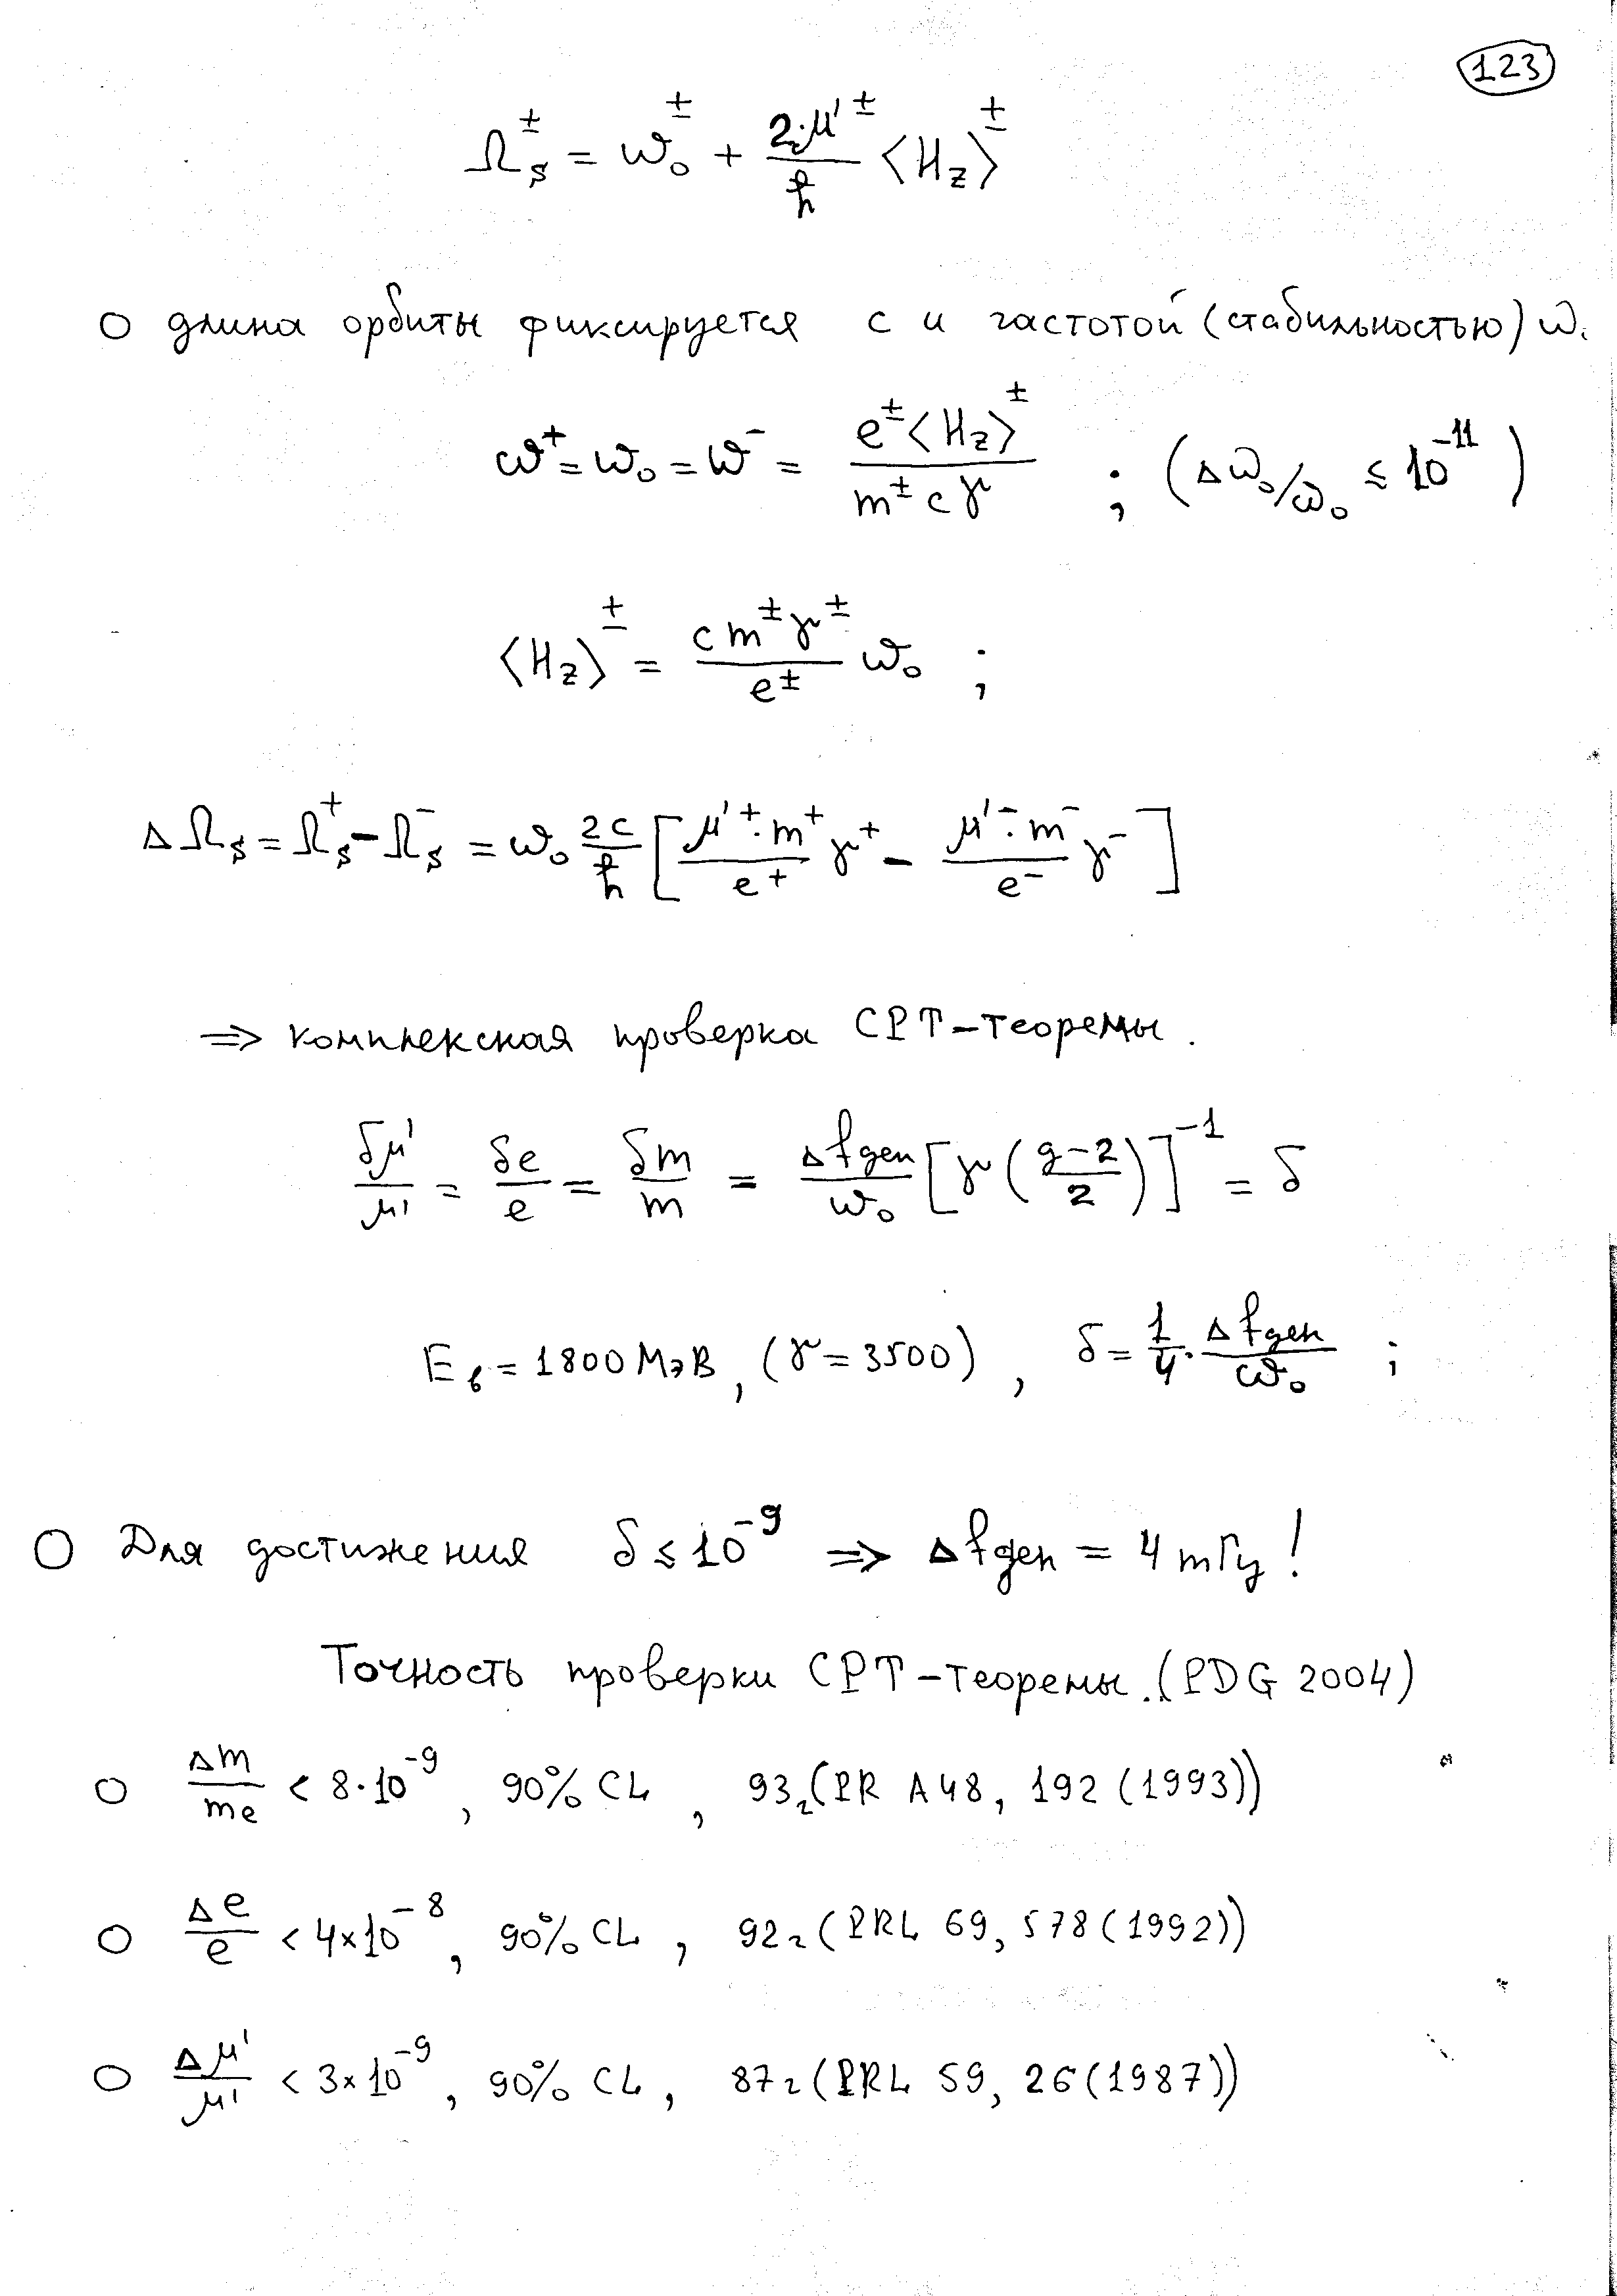 123
Ω_s^± = ω_0^± + 2·μ'^±/ħ ⟨H_z⟩^±
○ длина орбиты фиксируется с и частотой (стабильностью) ω.
ω^+ = ω_0 = ω^- = e^±⟨H_z⟩^± / m^± c γ ; (Δω_0/ω_0 ≤ 10^-11)
⟨H_z⟩^± = c m^± γ^± / e^± ω_0 ;
ΔΩ_s = Ω_s^+ − Ω_s^- = ω_0 2c/ħ [μ'^+·m^+/e^+ γ^+ − μ'^-·m^-/e^- γ^-]
⇒ комплексная проверка CPT-теоремы.
δμ'/μ' = δe/e = δm/m = Δf_деп/ω_0 [γ((g−2)/2)]^-1 = δ
E_в = 1800 МэВ, (γ = 3500), δ = 1/4 · Δf_деп/ω_0 ;
○ Для достижения δ ≤ 10^-9 ⇒ Δf_деп = 4 mГц!
Точность проверки CPT-теоремы. (PDG 2004)
○ Δm/me < 8·10^-9, 90% CL, 93г (PR A48, 192 (1993))
○ Δe/e < 4×10^-8, 90% CL, 92г (PRL 69, 578 (1992))
○ Δμ'/μ' < 3×10^-9, 90% CL, 87г (PRL 59, 26 (1987))